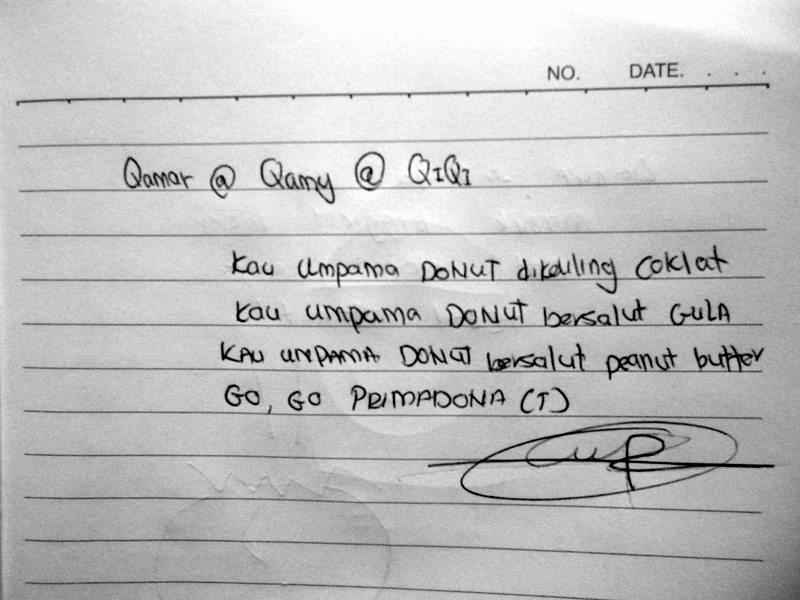 NO. DATE. . . .
Qamar @ Qamy @ QIQI
Kau Umpama DONUT dikeliling Coklat
Kau umpama DONUT bersalut GULA
KAU UMPAMA DONUT bersalut peanut butter
GO, GO PRIMADONA (T)